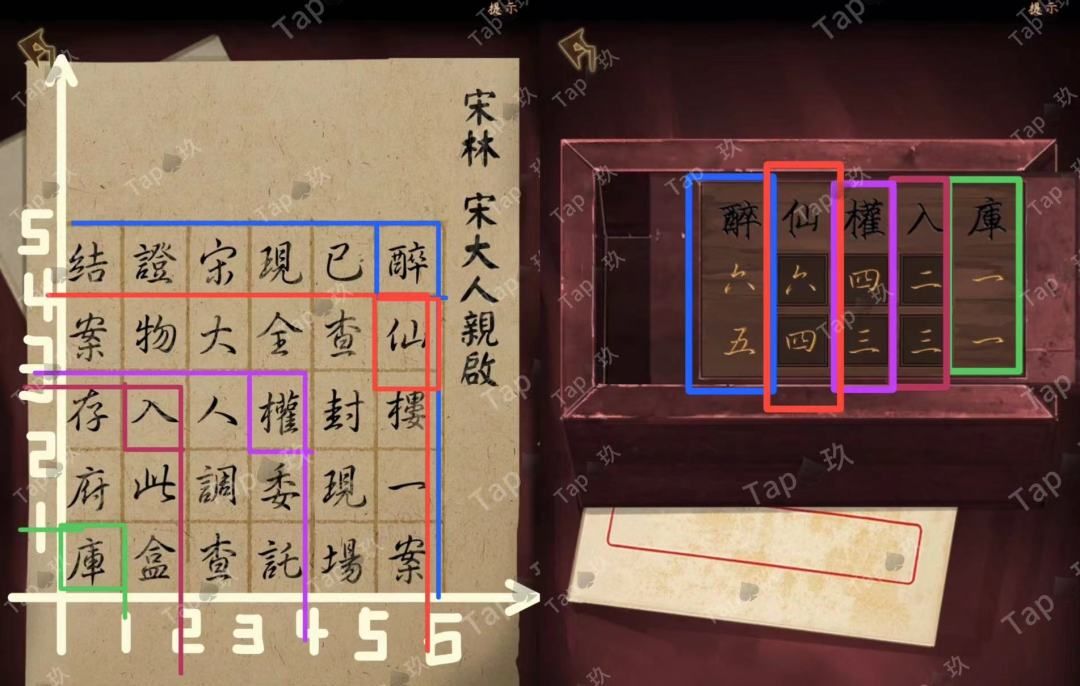 提示
宋林 宋大人親啟
醉仙樓一案
已查封現場
現全權委託
宋大人調查
證物入此盒
結案存府庫
5
4
3
2
1
1 2 3 4 5 6
提示
醉 仙 權 入 庫
六 六 四 二 一
五 四 三 三 一
Tap 玖